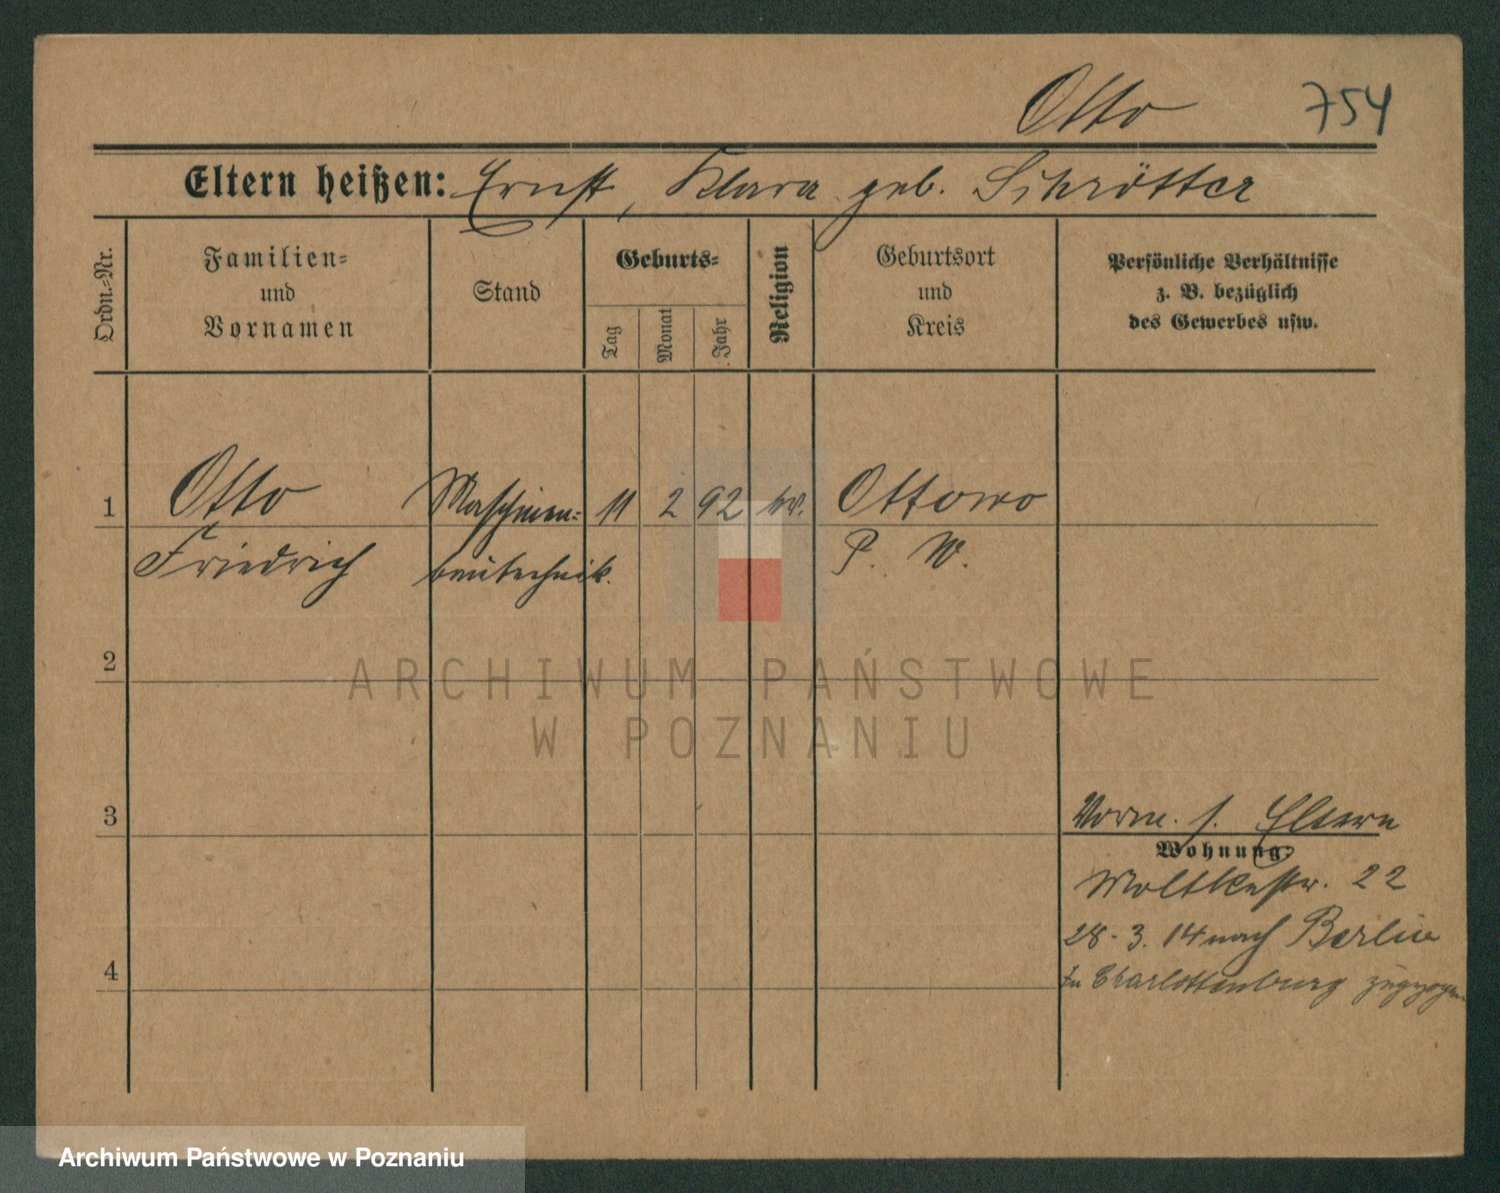 Otto 754
Eltern heißen: Ernst, Klara geb. Schrötter
Ordn.-Nr.
Familien-
und
Vornamen
Stand
Geburts-
Tag
Monat
Jahr
Religion
Geburtsort
und
Kreis
Persönliche Verhältnisse
z. B. bezüglich
des Gewerbes usw.
1 Otto Maschinen- 11 2 92 ev. Ottowo
Friedrich bautechnik. P. W.
2
ARCHIWUM PAŃSTWOWE
W POZNANIU
3 Vorm. s. Eltern
Wohnung:
Moltkestr. 22
28. 3. 14 nach Berlin
4 in Charlottenburg zugezogen
Archiwum Państwowe w Poznaniu